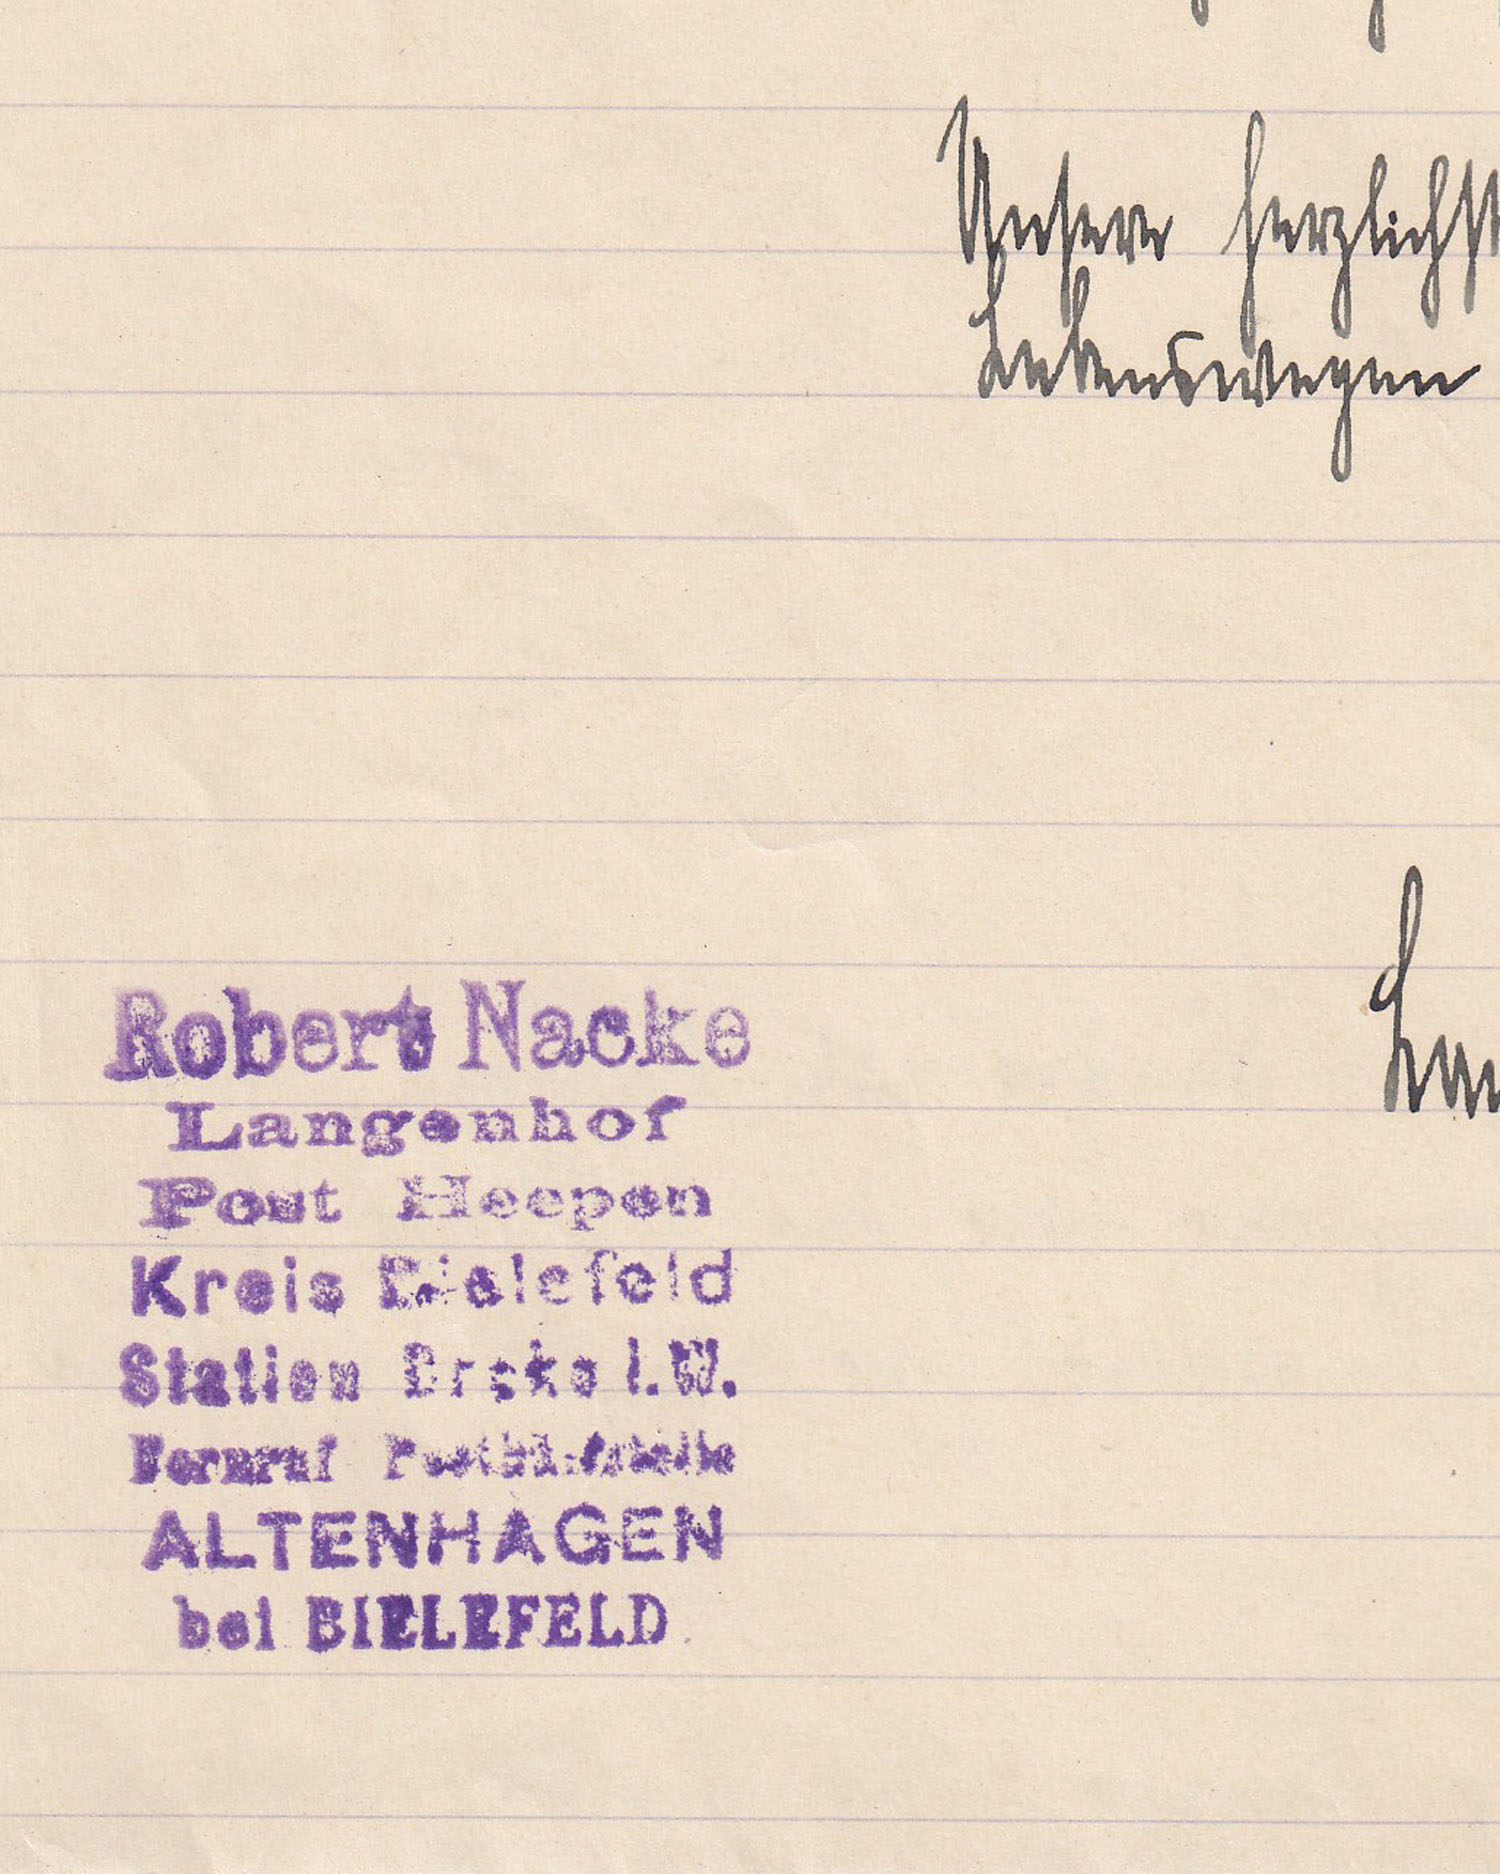 Unsere herzlichst
Lebenswegen
Robert Nacke
Langenhof
Post Heepen
Kreis Bielefeld
Station Brake i.W.
Fernruf Posthilfsstelle
ALTENHAGEN
bei BIELEFELD